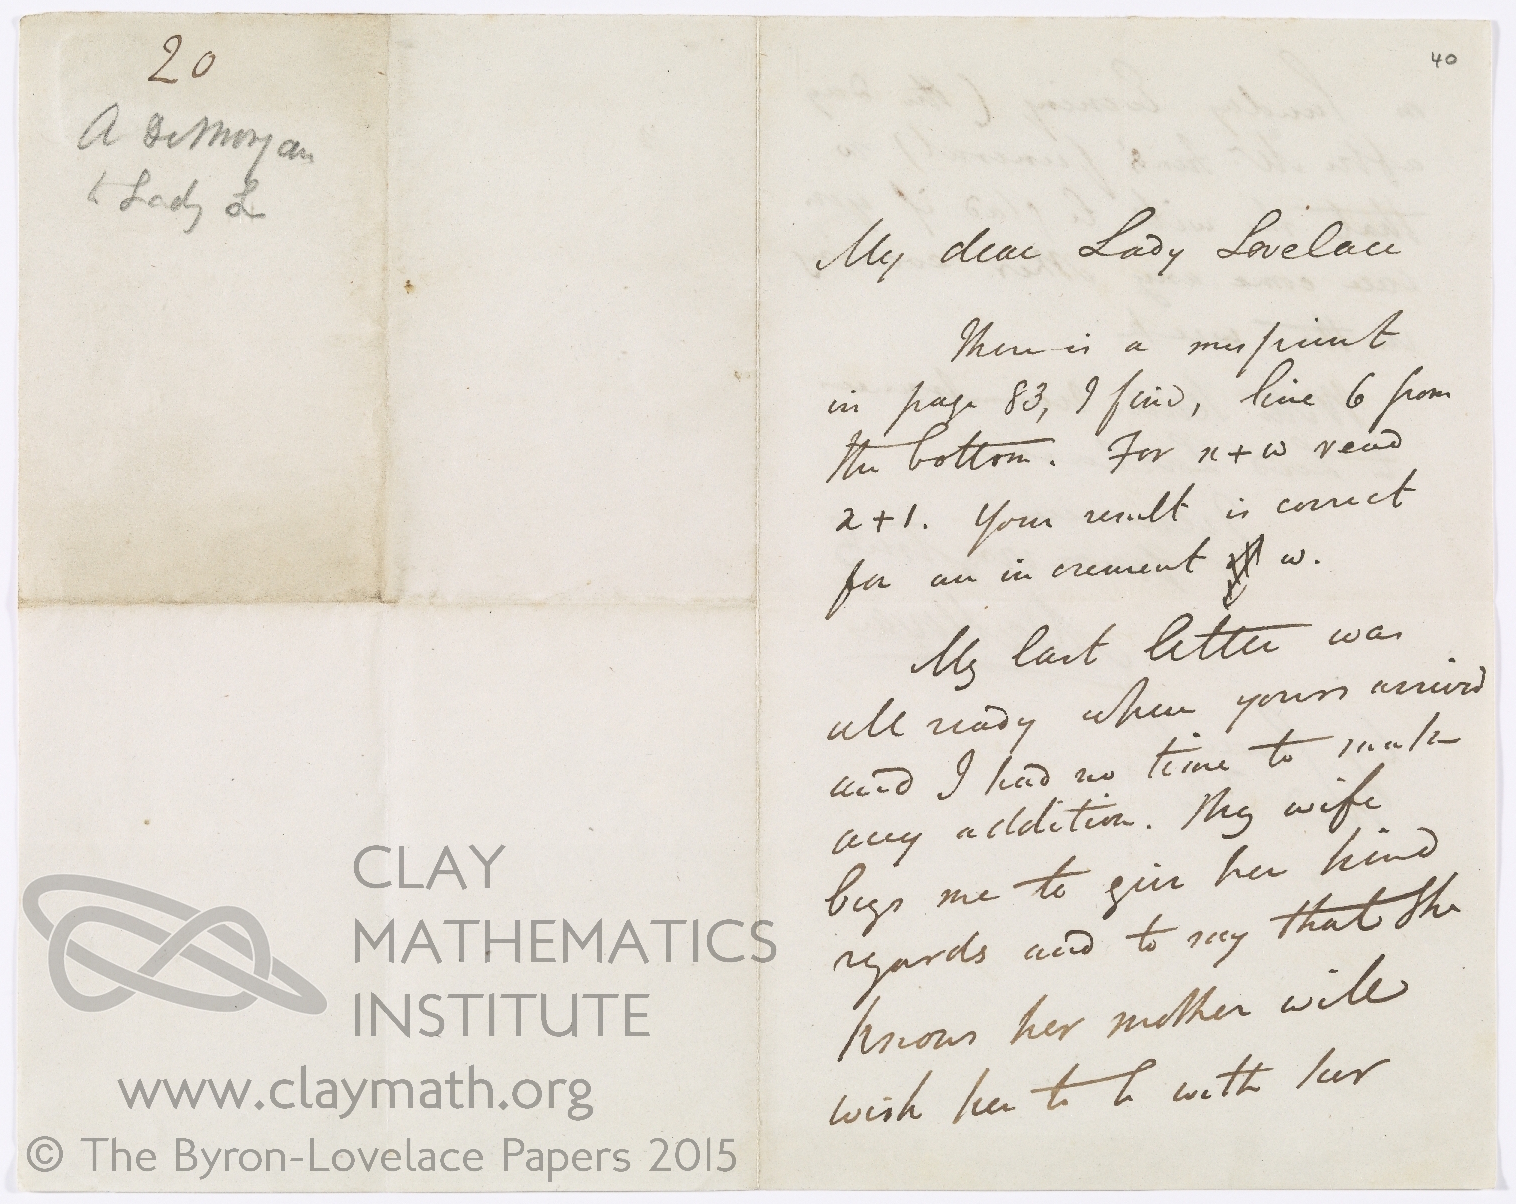 20
A De Morgan
to Lady L
40
My dear Lady Lovelace
There is a misprint
in page 83, I find, line 6 from
the bottom. For x+w read
x+1. Your result is correct
for an increment w.
My last letter was
all ready when yours arrived
and I had no time to make
any addition. My wife
begs me to give her kind
regards and to say that she
knows her mother will
wish her to be with her
CLAY
MATHEMATICS
INSTITUTE
www.claymath.org
© The Byron-Lovelace Papers 2015